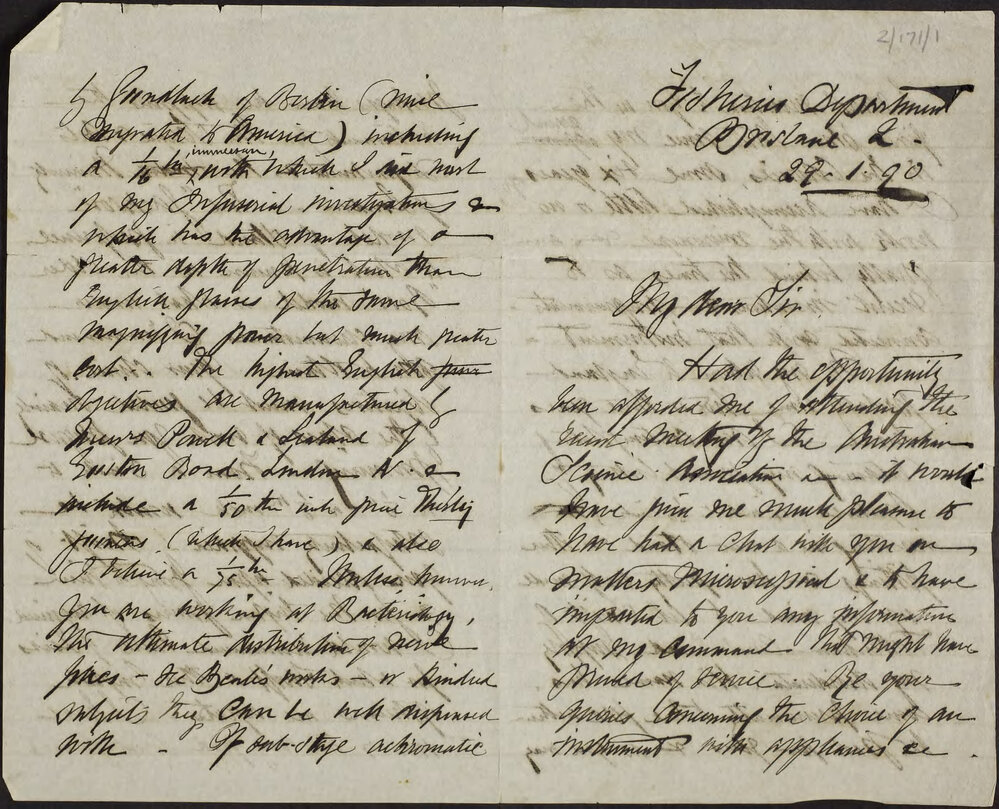 2/171/1
Fisheries Department
Brisbane Q.
29. 1. 90
My dear Sir
Had the opportunity
been afforded me of attending the
recent meeting of the Australian
Science Association it would
have given me much pleasure to
have had a chat with you on
matters Microscopical & to have
imparted to you any information
at my command that might have
proved of service. Re your
queries concerning the choice of an
instrument with appliances &c
by Goundlach of Berlin (since
migrated to America) including
a 1/16 th immersion, with which I did most
of my Infusorial investigations &
which has the advantage of a
greater depth of penetration than
English glasses of the same
magnifying power but much greater
cost. The highest English
objectives are manufactured by
Messrs Powell & Lealand of
Euston Road London N. &
include, a 1/50 th inch price thirty
guineas (which I have) & also
I believe a 1/75 th. Unless however
you are working at Bacteriology,
the ultimate distribution of nerve
fibres - see Beale's works - or kindred
subjects they can be well dispensed
with - Of sub-stage achromatic